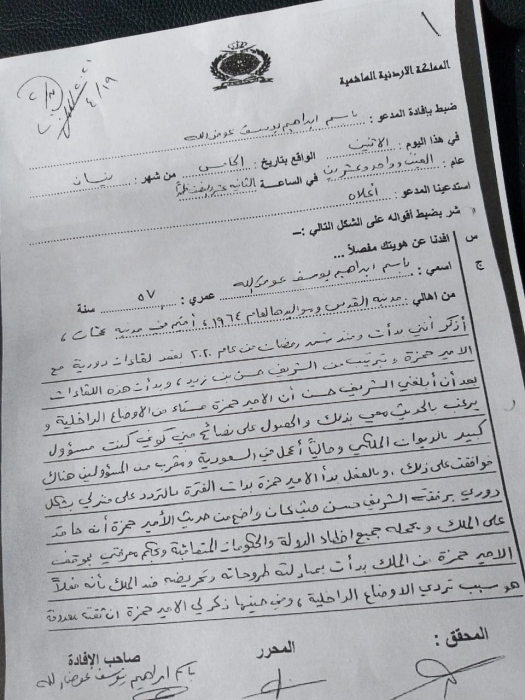 ٤/١٩
المملكة الاردنية الهاشمية
ضبط بإفادة المدعو : باسم ابراهيم يوسف عوض الله
في هذا اليوم : الاثنين الواقع بتاريخ : الخامس من شهر : نيسان
عام : الفين وواحد وعشرين في الساعة الثانية عشر ظهراً
استدعينا المدعو : أعلاه
شر بضبط أقواله على الشكل التالي :-
س افدنا عن هويتك مفصلاً ...
ج اسمي : باسم ابراهيم يوسف عوض الله عمري : ٥٧ سنة
من اهالي : مدينة القدس ومواليدها لعام ١٩٦٤ ، أقيم في مدينة عمان ،
أذكر أنني بدأت ومنذ شهر رمضان من عام ٢٠٢٠ بعقد لقاءات دورية مع
الامير حمزة وبترتيب من الشريف حسن بن زيد ، وبدأت هذه اللقاءات
بعد أن أبلغني الشريف حسن أن الامير حمزة مستاء من الاوضاع الداخلية و
يرغب بالحديث معي بذلك والحصول على نصائح مني كوني كنت مسؤول
كبير بالديوان الملكي وحالياً أعمل في السعودية ومقرب من المسؤولين هناك
فوافقت على ذلك ، وبالفعل بدأ الامير حمزة بذات الفترة بالتردد على منزلي بشكل
دوري برفقة الشريف حسن حيث كان واضح من حديث الأمير حمزة أنه حاقد
على الملك ويحمله جميع اخطاء الدولة والحكومات المتعاقبة وبحكم معرفتي بموقف
الامير حمزة من الملك بدأت بمبادلته طروحاته وتحريضه ضد الملك بأنه فعلاً
هو سبب تردي الاوضاع الداخلية ، وفي حينها ذكر لي الامير حمزة ان ثقته معدومة
المحقق : المحرر صاحب الإفادة
باسم ابراهيم يوسف عوض الله